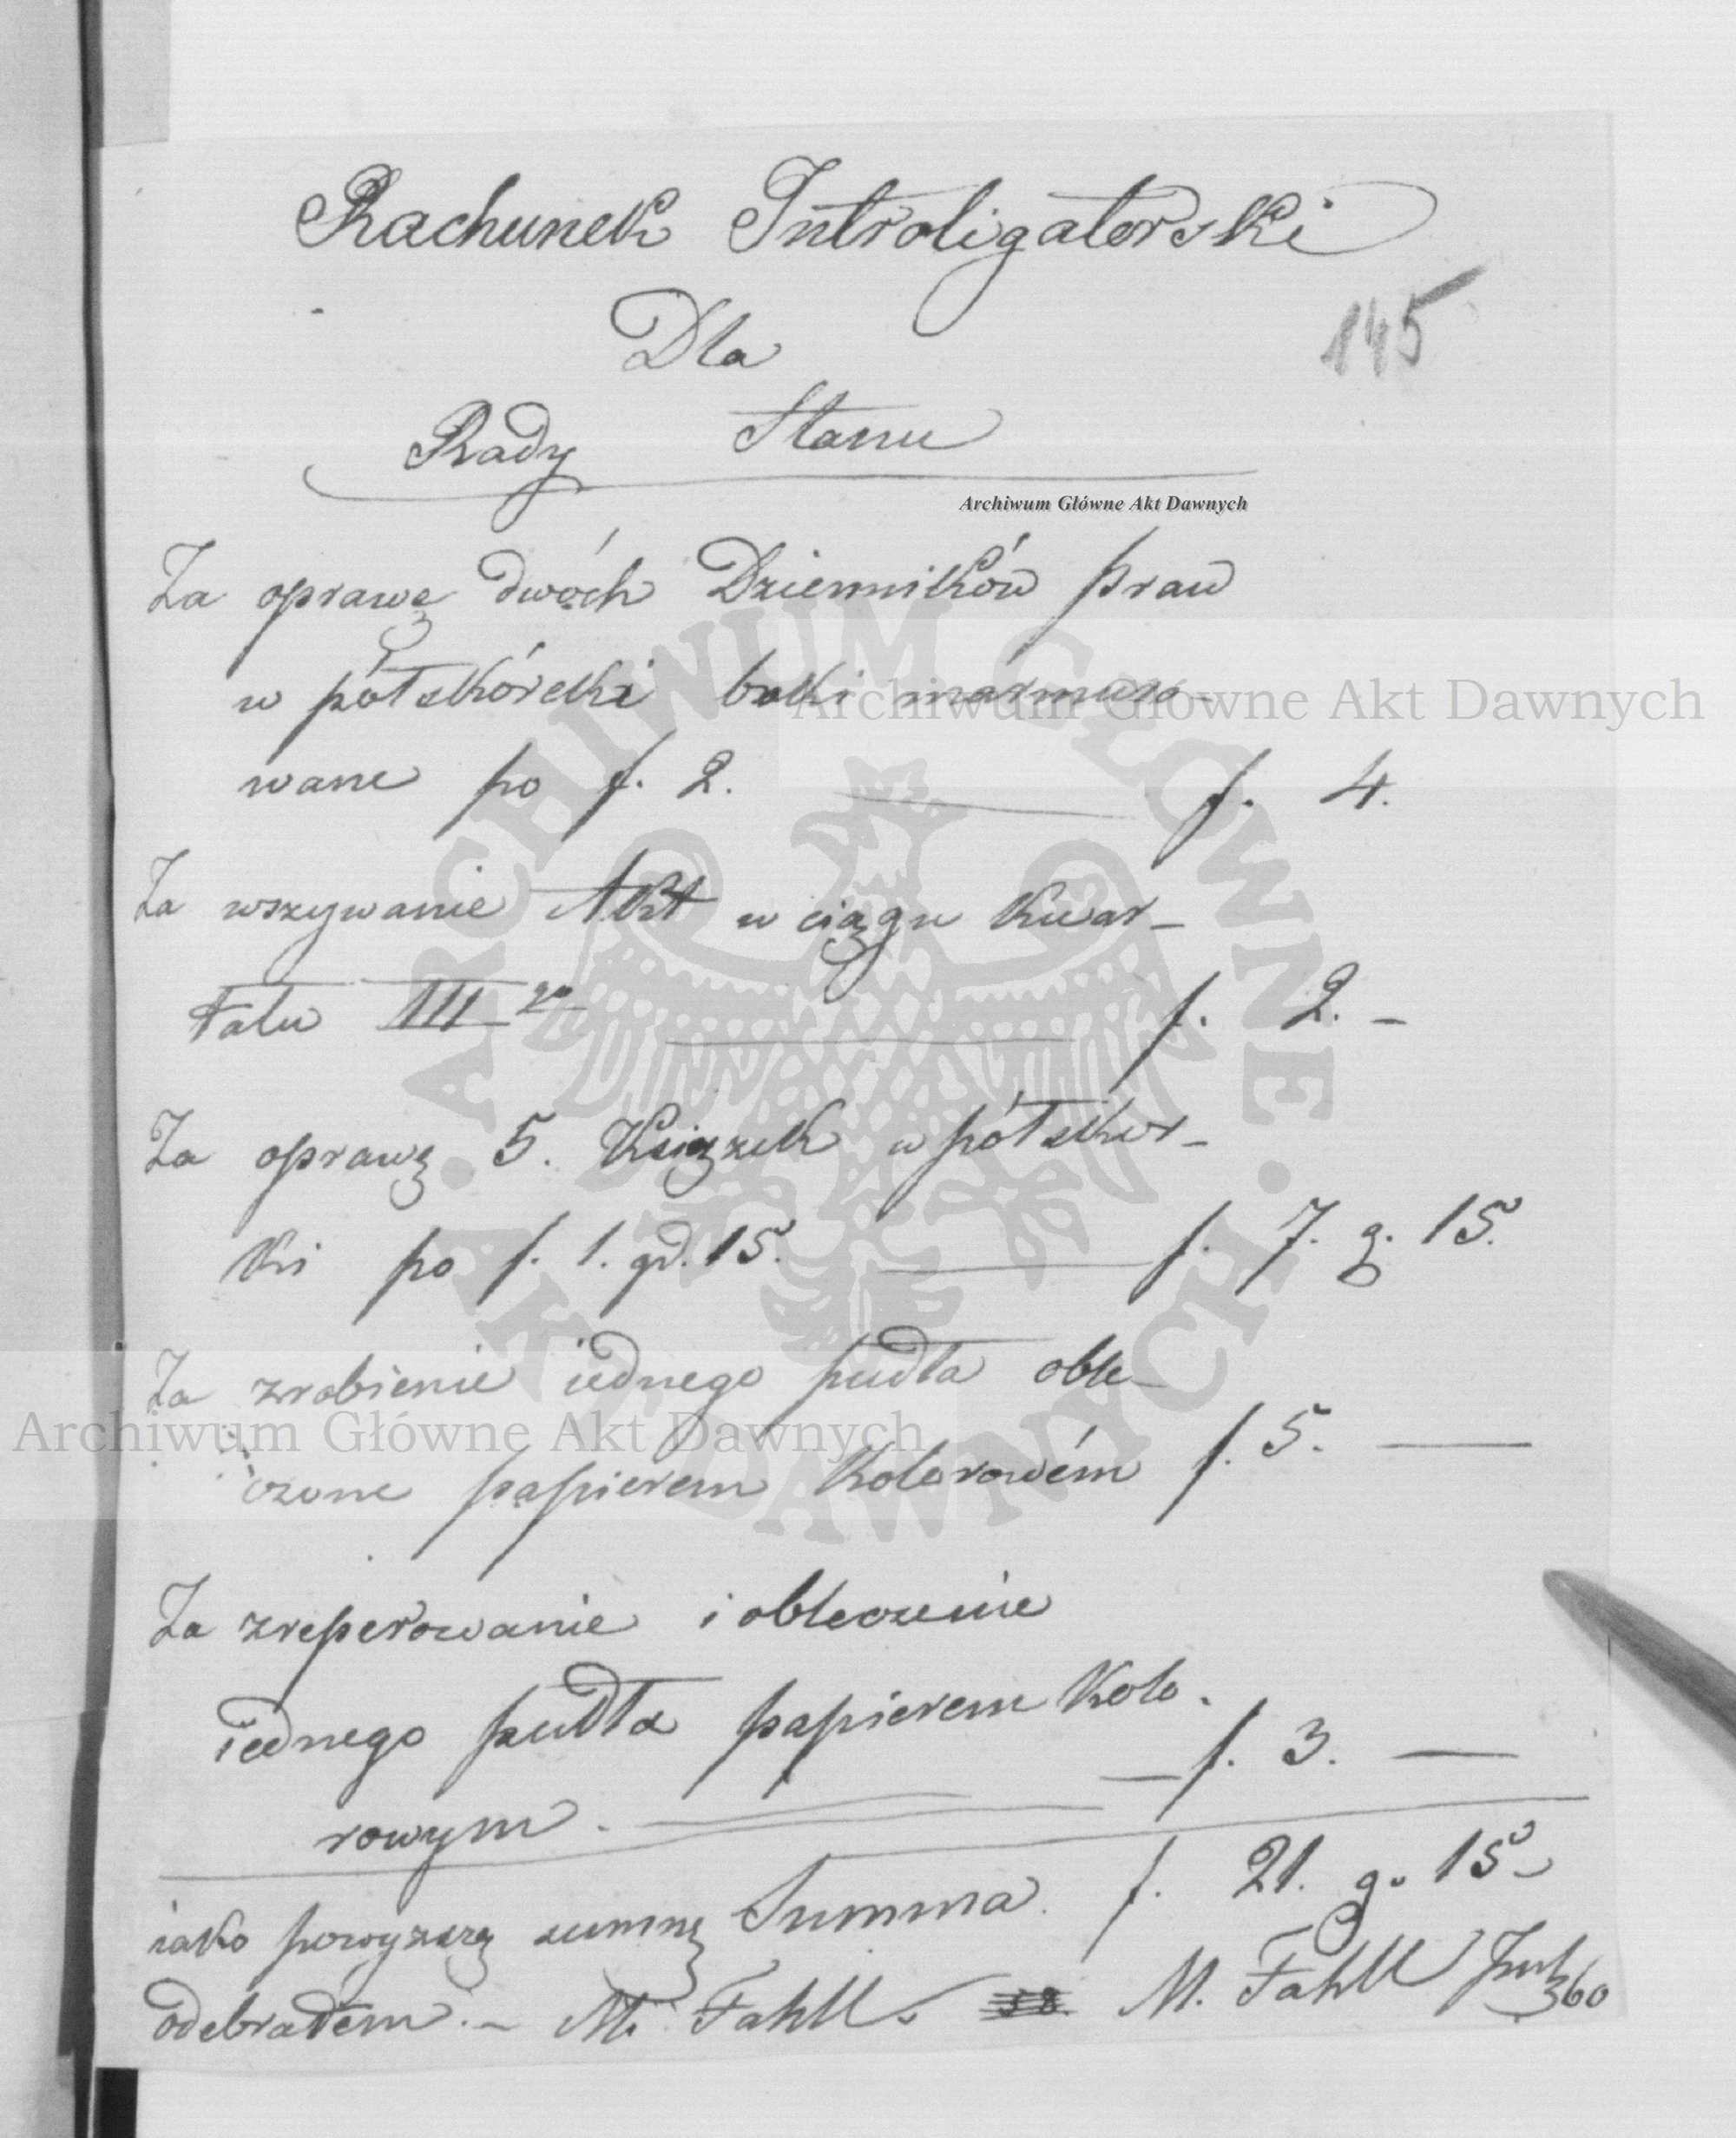 Rachunek Introligatorski
145
Dla
Rady Stanu
Archiwum Główne Akt Dawnych
Za oprawę dwóch Dzienników Praw
w półskórcki boki marmuro-
wane po f. 2. f. 4.
Za wszywanie Akt w ciągu Kwar-
tału III go f. 2. -
Za oprawę 5. Książek w półskur-
ki po f. 1. gr. 15. f. 7. g. 15.
Za zrobienie iednego pudła oble-
czone papierem Kolorowém f. 5. —
Za zreperowanie i obleczenie
iednego pudła papierem Kolo.
rowym. — f. 3. —
Summa. f. 21. g. 15
iako powyzszą summę
odebrałem. - M. Fahll. M. Fahll Int
360
Archiwum Główne Akt Dawnych
Archiwum Główne Akt Dawnych
· ARCHIWUM GŁÓWNE · AKT DAWNYCH